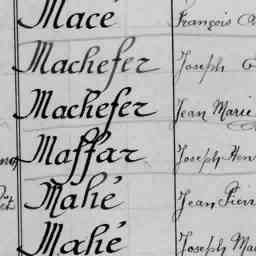 Macé François
Machefer Joseph
Machefer Jean Marie
Maffar Joseph Henr
Mahé Jean Pierr
Mahé Joseph Ma